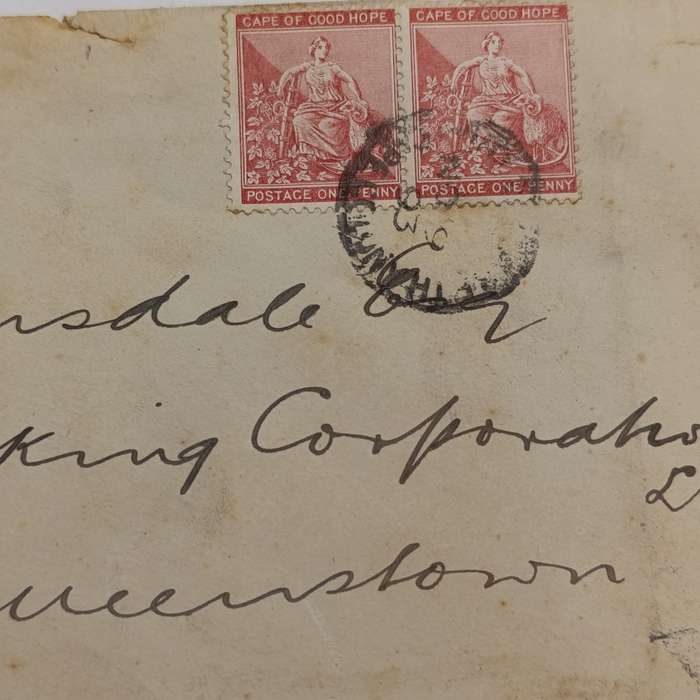 CAPE OF GOOD HOPE CAPE OF GOOD HOPE
POSTAGE ONE PENNY POSTAGE ONE PENNY
nsdale Esq
king Corporatio
L
ueenstown